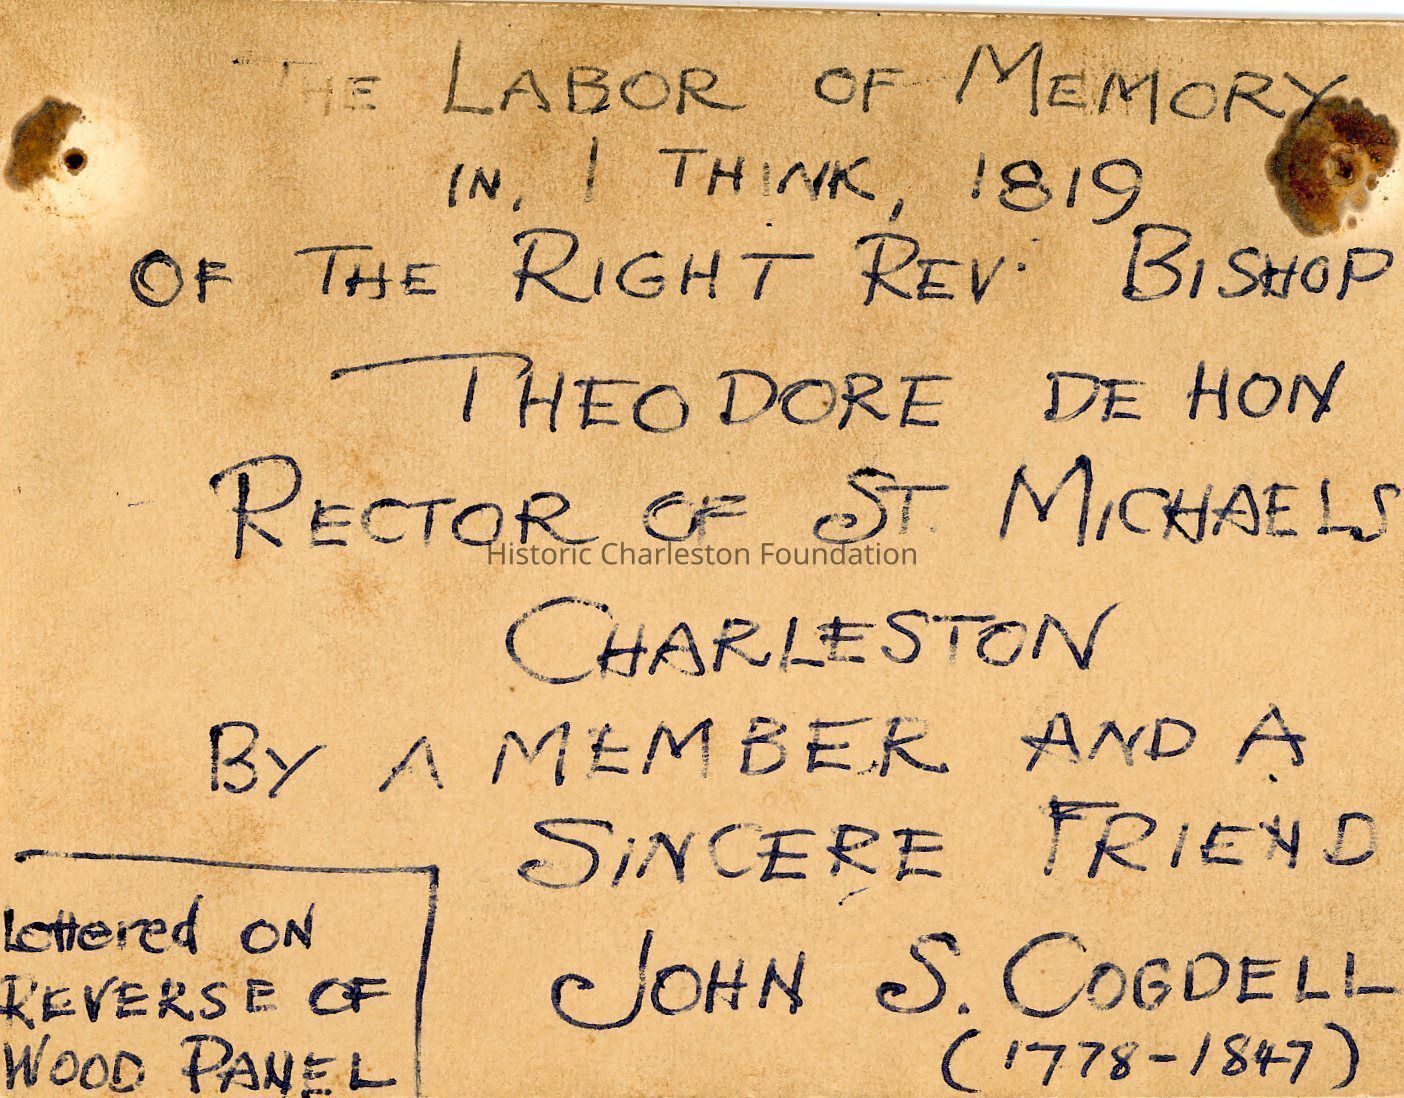 THE LABOR OF MEMORY
IN, I THINK, 1819
OF THE RIGHT REV. BISHOP
THEODORE DE HON
RECTOR OF ST. MICHAELS
Historic Charleston Foundation
CHARLESTON
BY A MEMBER AND A
SINCERE FRIEND
JOHN S. COGDELL
(1778-1847)
Lettered ON
REVERSE OF
WOOD PANEL